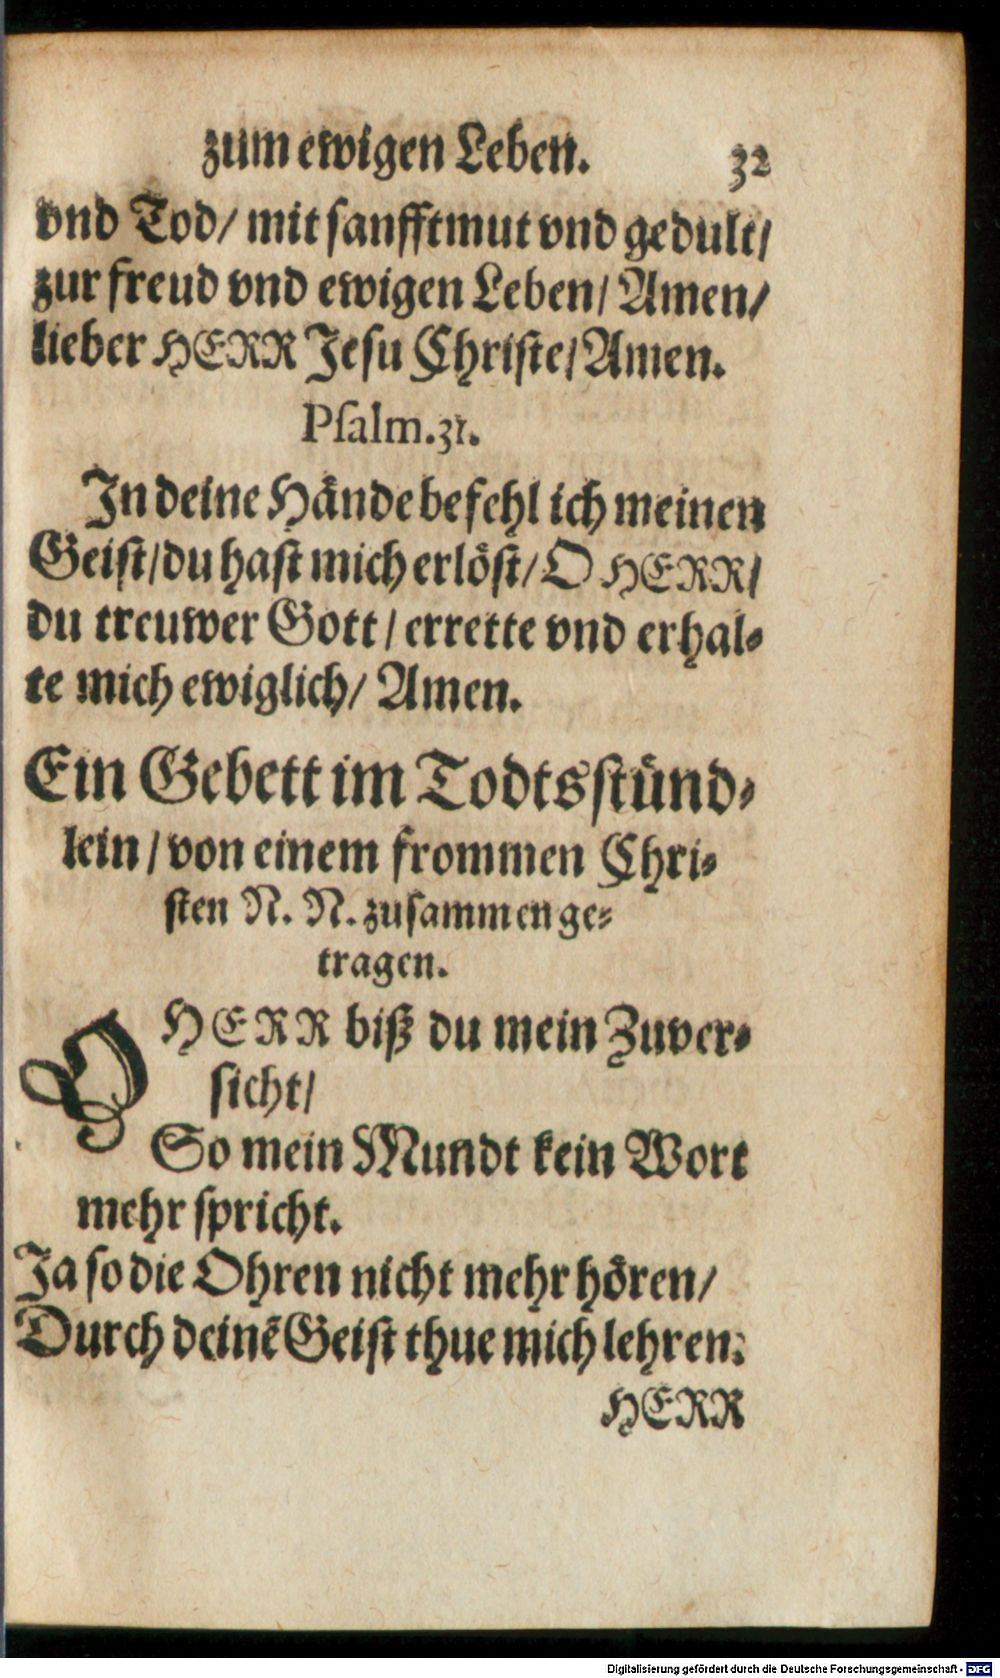 zum ewigen Leben. 32
vnd Tod/ mit sanfftmut vnd gedult/
zur freud vnd ewigen Leben/ Amen/
lieber HERR Jesu Christe/ Amen.
Psalm. 31.
In deine Hände befehl ich meinen
Geist/ du hast mich erlöst/ O HERR/
du treuwer Gott/ errette vnd erhal-
te mich ewiglich/ Amen.
Ein Gebett im Todtsstünd-
lein/ von einem frommen Chri-
sten N. N. zusammen ge-
tragen.
O HERR biß du mein Zuver-
sicht/
So mein Mundt kein Wort
mehr spricht.
Ja so die Ohren nicht mehr hören/
Durch deinẽ Geist thue mich lehren:
HERR
Digitalisierung gefördert durch die Deutsche Forschungsgemeinschaft - DFG